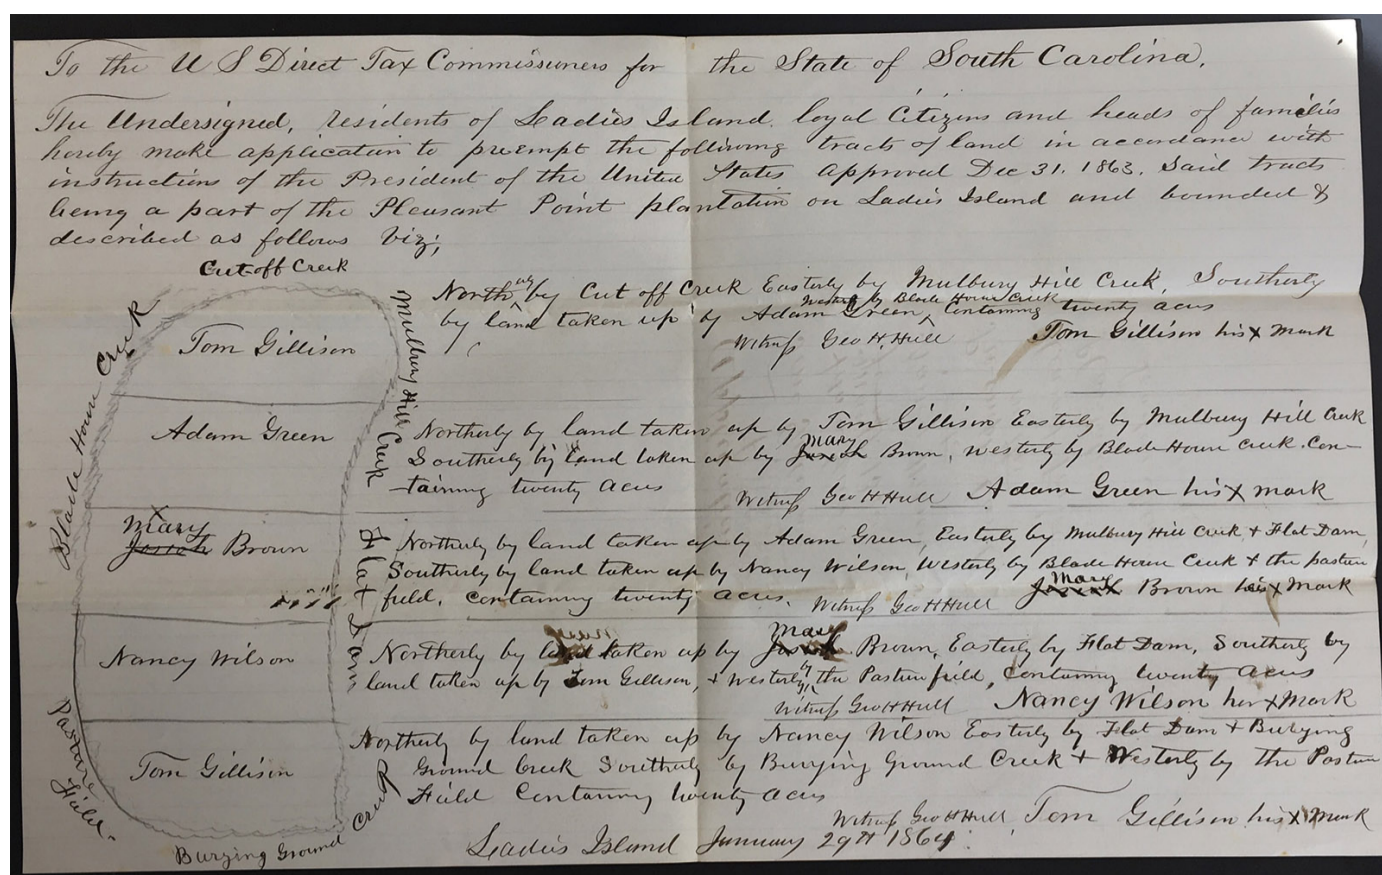 To the U S Direct Tax Commissioners for the State of South Carolina,
The Undersigned, residents of Ladies Island, loyal Citizens and heads of families
hereby make application to preempt the following tracts of land in accordance with
instructions of the President of the United States approved Dec 31. 1863. Said tracts
being a part of the Pleasant Point plantation on Ladies Island and bounded &
described as follows Viz;
Cut off Creek
Blade House Creek
Mulbury Hill Creek
Flat Dam
Pasture Field
Burying Ground Creek
Tom Gillison
Northerly by Cut off Creek Easterly by Mulbury Hill Creek, Southerly
by land taken up by Adam Green, Westerly by Blade House Creek Containing twenty acres
Witness Geo H. Hull Tom Gillison his X mark
Adam Green
Northerly by land taken up by Tom Gillison Easterly by Mulbury Hill Creek
Southerly by land taken up by Josiah Mary Brown, Westerly by Blade House Creek. Con-
taining twenty acres
Witness Geo H Hull Adam Green his X mark
Mary
Josiah Brown
Northerly by land taken up by Adam Green, Easterly by Mulbury Hill Creek & Flat Dam,
Southerly by land taken up by Nancy Wilson, Westerly by Blade House Creek & the pasture
field, Containing twenty acres. Witness Geo H Hull Josiah Mary Brown X Mark
Nancy Wilson
Northerly by land taken up by Josiah Mary Brown, Easterly by Flat Dam, Southerly by
land taken up by Tom Gillison, & Westerly by the Pasture field, Containing twenty acres
Witness Geo H Hull Nancy Wilson her X Mark
Tom Gillison
Northerly by land taken up by Nancy Wilson Easterly by Flat Dam & Burying
Ground Creek Southerly by Burying Ground Creek & Westerly by the Pasture
Field Containing twenty acres
Witness Geo H Hull, Tom Gillison his X Mark
Ladies Island January 29th 1864.